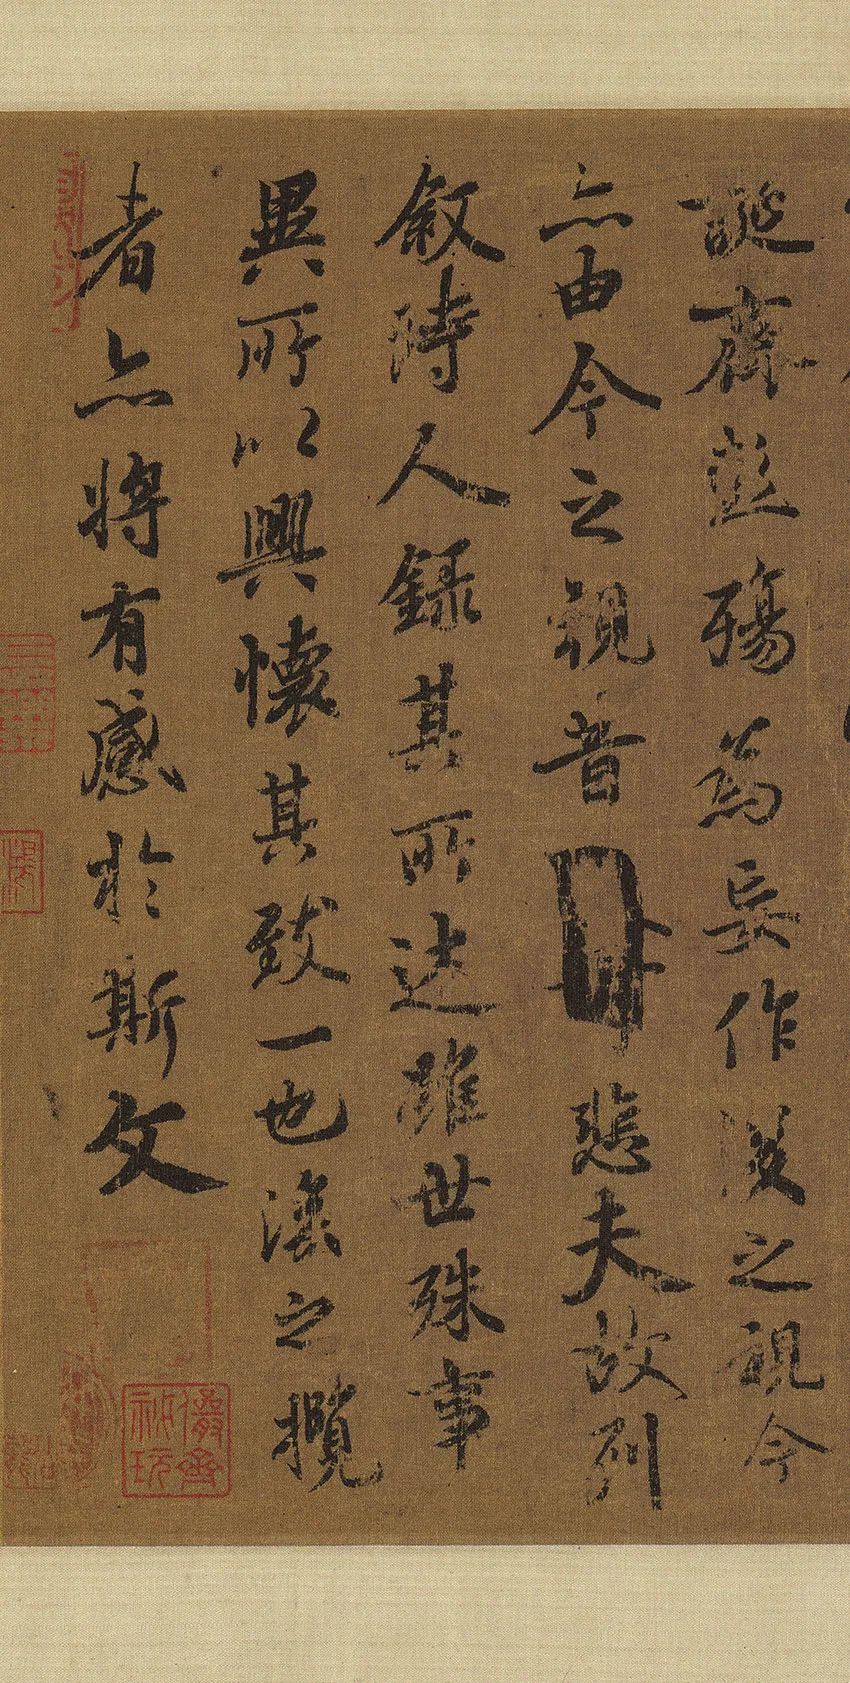 誕齊彭殤為妄作後之視今
亦由今之視昔悲夫故列
叙時人錄其所述雖世殊事
異所以興懷其致一也後之攬
者亦將有感於斯文
儼齋
祕玩